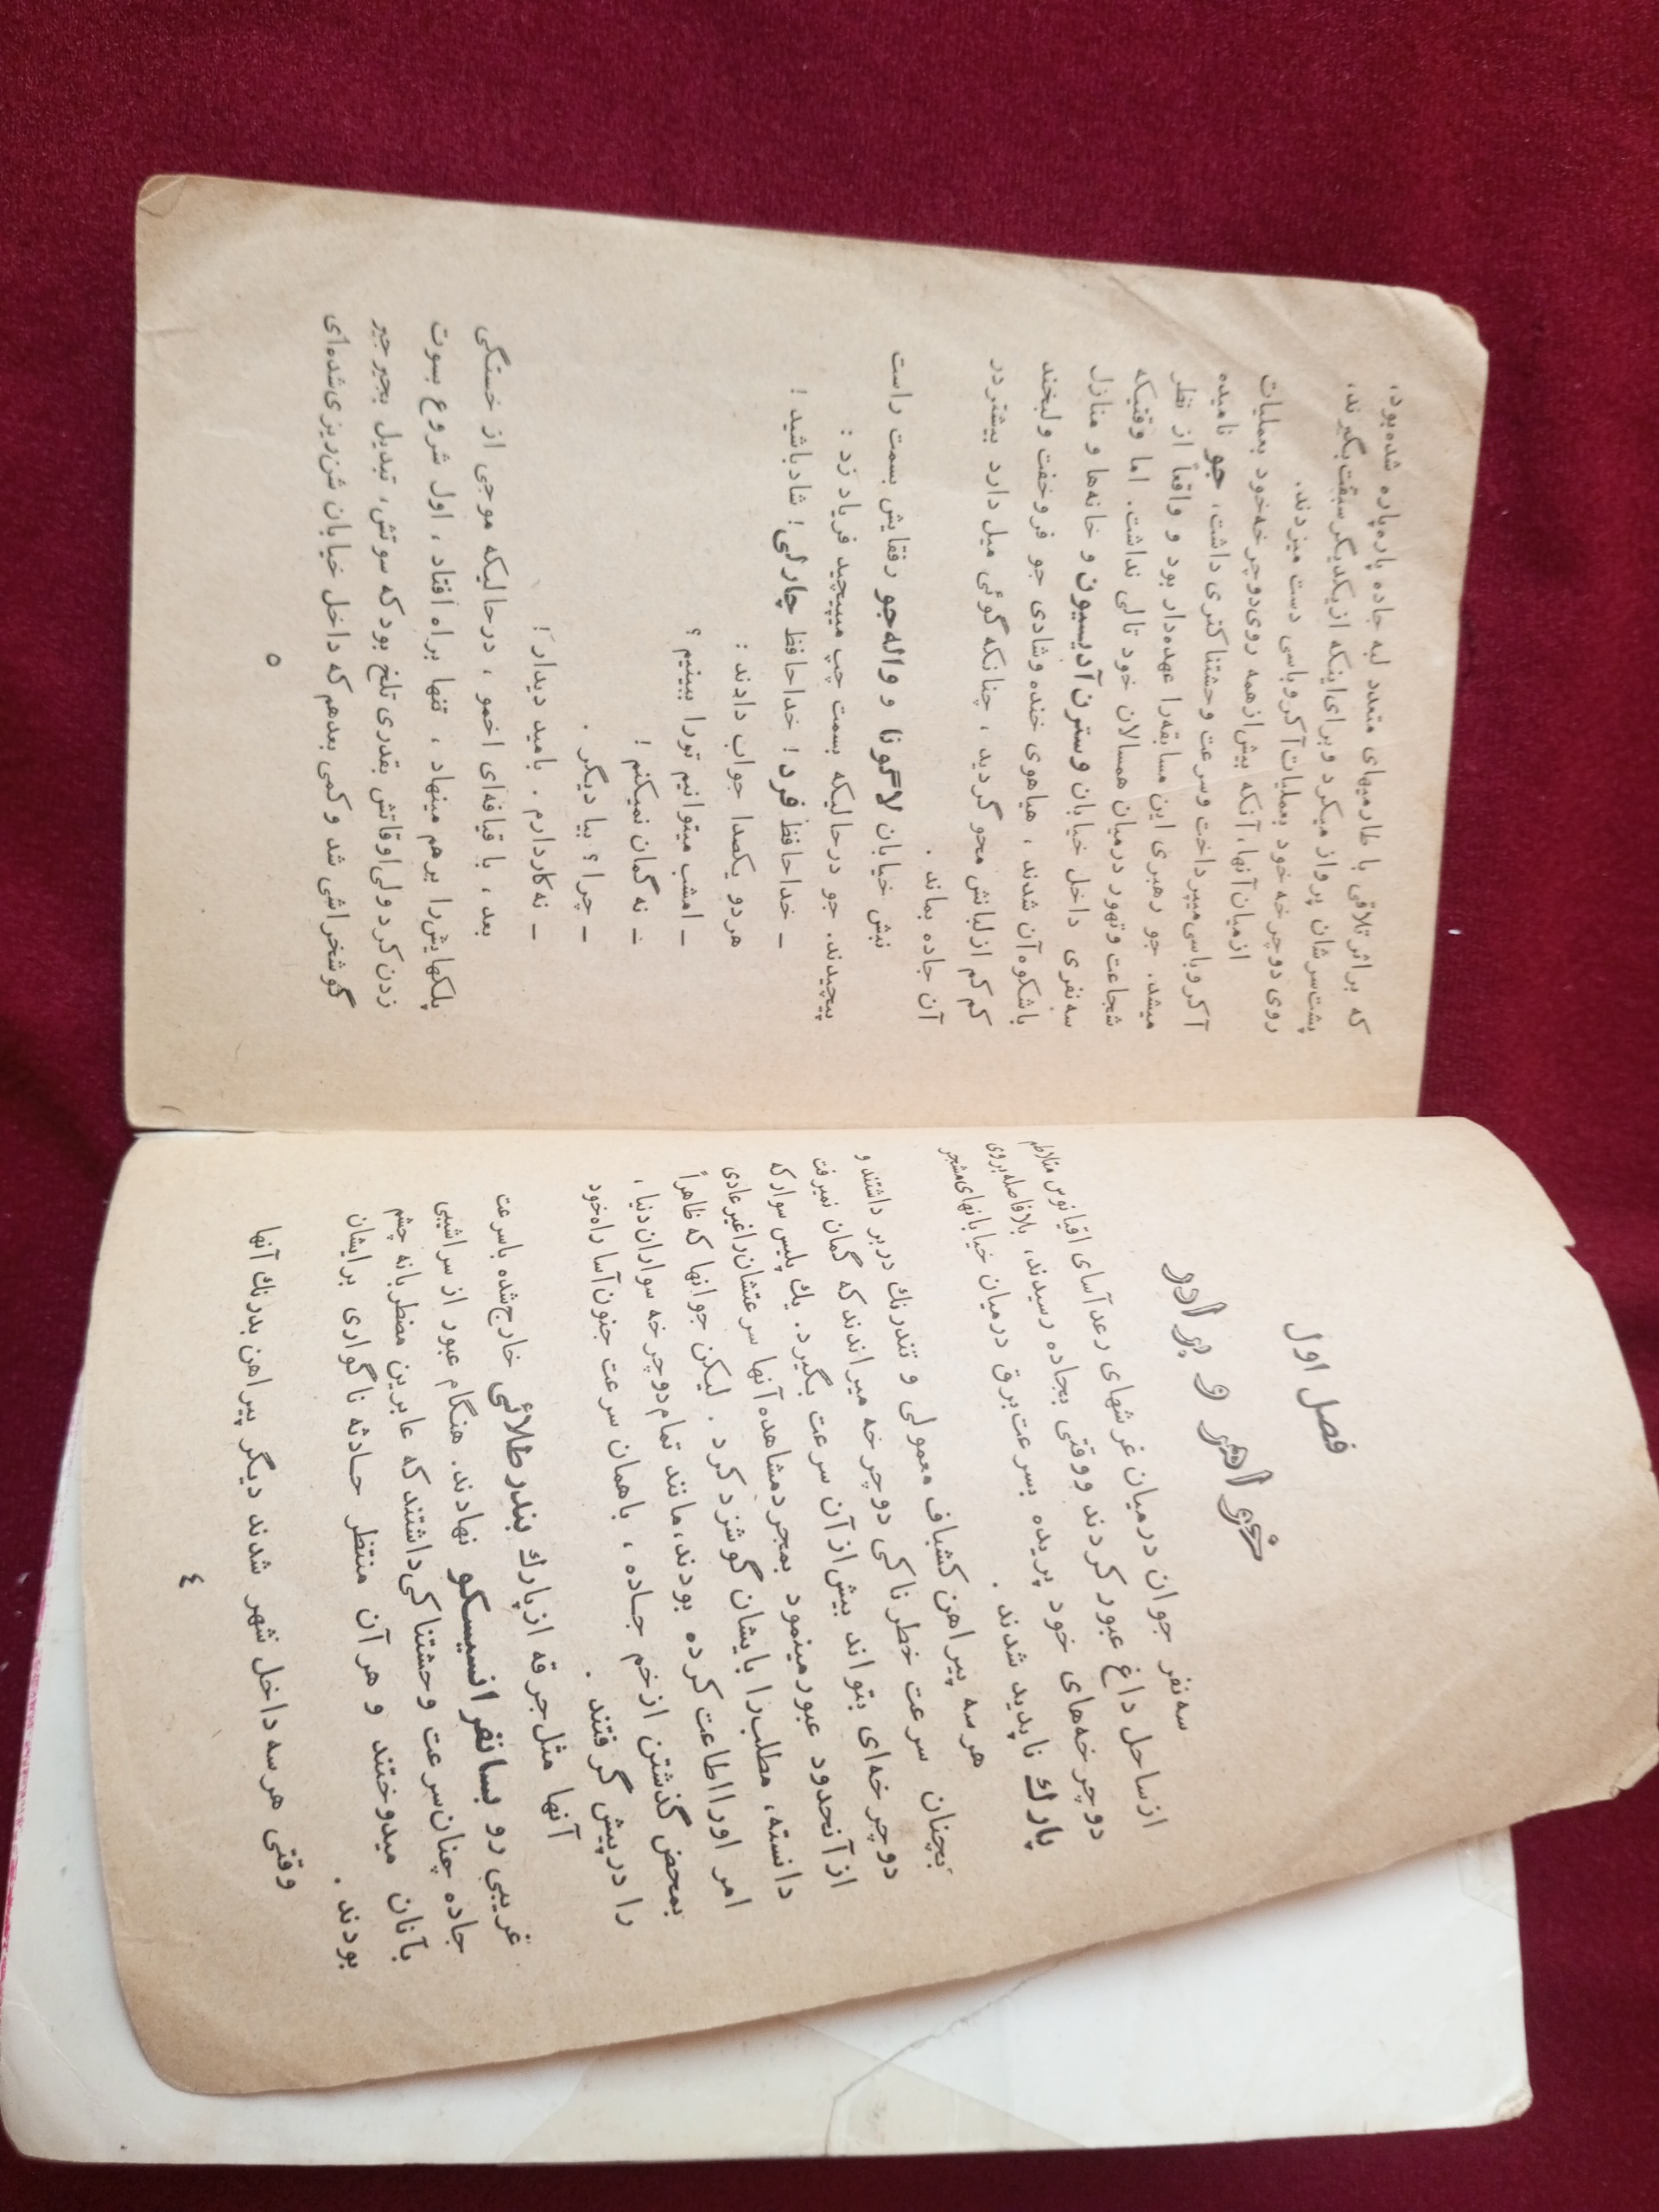 فصل اول
خواهر و برادر
سه‌نفر جوان درمیان غرشهای رعدآسای اقیانوس متلاطم
ازساحل داغ عبور کردند ووقتی بجاده رسیدند، بلافاصله بروی
دوچرخه‌های خود پریده بسرعت برق درمیان خیابانهای مشجر
پارك ناپدید شدند .
هرسه پیراهن کشباف معمولی و تندرنك دربر داشتند و
بچنان سرعت خطرناکی دوچرخه میراندند که گمان نمیرفت
دوچرخه‌ای بتواند بیش‌ازآن سرعت بگیرد. یك پلیس سوار که
ازآنحدود عبورمینمود بمجردمشاهده آنها سرعتشان‌راغیرعادی
دانسته، مطلب‌را بایشان گوشزد کرد . لیکن جوانها که ظاهراً
امر اورا اطاعت کرده بودند، مانند تمام دوچرخه سواران دنیا،
بمحض گذشتن ازخم جـاده ، باهمان سرعت جنون‌آسا راه‌خود
را درپیش گرفتند .
آنها مثل‌جرقه ازپارك بندرطلائی خارج‌شده باسرعت
غریبی رو بسانفرانسیسکو نهادند. هنگام عبور ازسراشیبی
جاده چنان‌سرعت وحشتناکی‌داشتند که عابرین مضطربانه چشم
بآنان میدوختند و هرآن منتظر حـادثه ناگواری برایشان
بودند .
وقتی هرسه داخل شهر شدند دیگر پیراهن بدرنك آنها
٤
که براثرتلاقی با طارمیهای متعدد لبه جاده پاره‌پاره شده‌بود،
پشت‌سرشان پرواز میکرد وبرای‌اینکه ازیکدیگرسبقت‌بگیرند،
روی دوچرخه خود بعملیات‌آکروباسی دست میزدند.
ازمیان‌آنها، آنکه بیش‌ازهمه روی‌دوچرخه‌خود بعملیات
آکروباسی‌میپرداخت وسرعت وحشتناکتری داشت، جو نامیده
میشد. جو رهبری این مسابقه‌را عهده‌دار بود و واقعاً از نظر
شجاعت وتهور درمیان همسالان خود تالی نداشت. اما وقتیکه
سه‌نفری داخل خیابان وسترن‌آدیسیون و خانه‌ها و منازل
باشکوه‌آن شدند ، هیاهوی خنده وشادی جو فروخفت و لبخند
کم‌کم ازلبانش محو گردید ، چنانکه گوئی میل دارد بیشتردر
آن جاده بماند .
نبش خیابان لاگونا و واله‌جو رفقایش بسمت راست
پیچیدند. جو درحالیکه بسمت چپ میپیچید فریاد زد :
ــ خداحافظ فرد! خداحافظ چارلی! شادباشید !
هردو یکصدا جواب دادند :
ــ امشب میتوانیم تورا ببینیم ؟
ــ نه گمان نمیکنم !
ــ چرا ؟ بیا دیگر .
ــ نه کار دارم . بامید دیدار !
بعد ، با قیافه‌ای اخمو ، درحالیکه موجی از خستگی
پلکهایش‌را برهم مینهاد ، تنها براه افتاد ، اول شروع بسوت
زدن کرد ولی‌اوقاتش بقدری تلخ بود که سوتش، تبدیل بجیرجیر
گوشخراشی شد و کمی بعدهم که داخل خیابان شن‌ریزی‌شده‌ای
٥